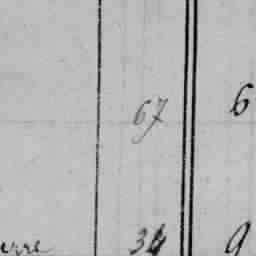 67 6
erre 34 9